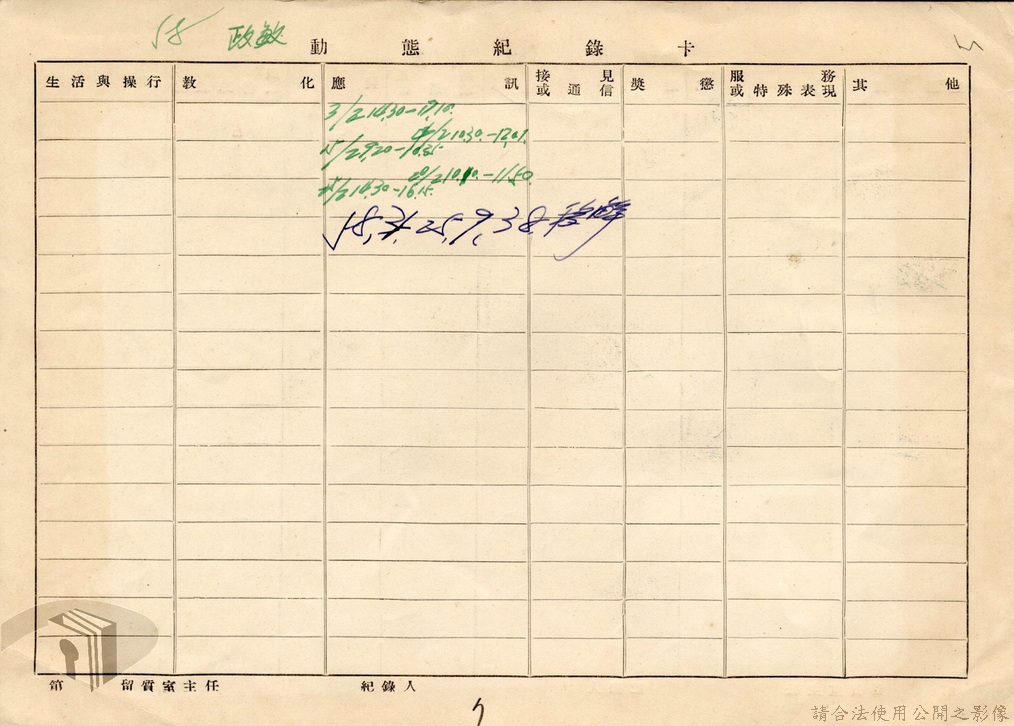 58 政敏
動態紀錄卡
生活與操行 教化 應訊 接見或通信 獎懲 服務或特殊表現 其他
3/2 14.30-17.10.
10.30.-12.01.
15/2 9.20-
20/2 10.10.-11.50.
/2 14.30-16.15.
58, 3, 25, 9, 38.
第 留質室主任 紀錄人
請合法使用公開之影像